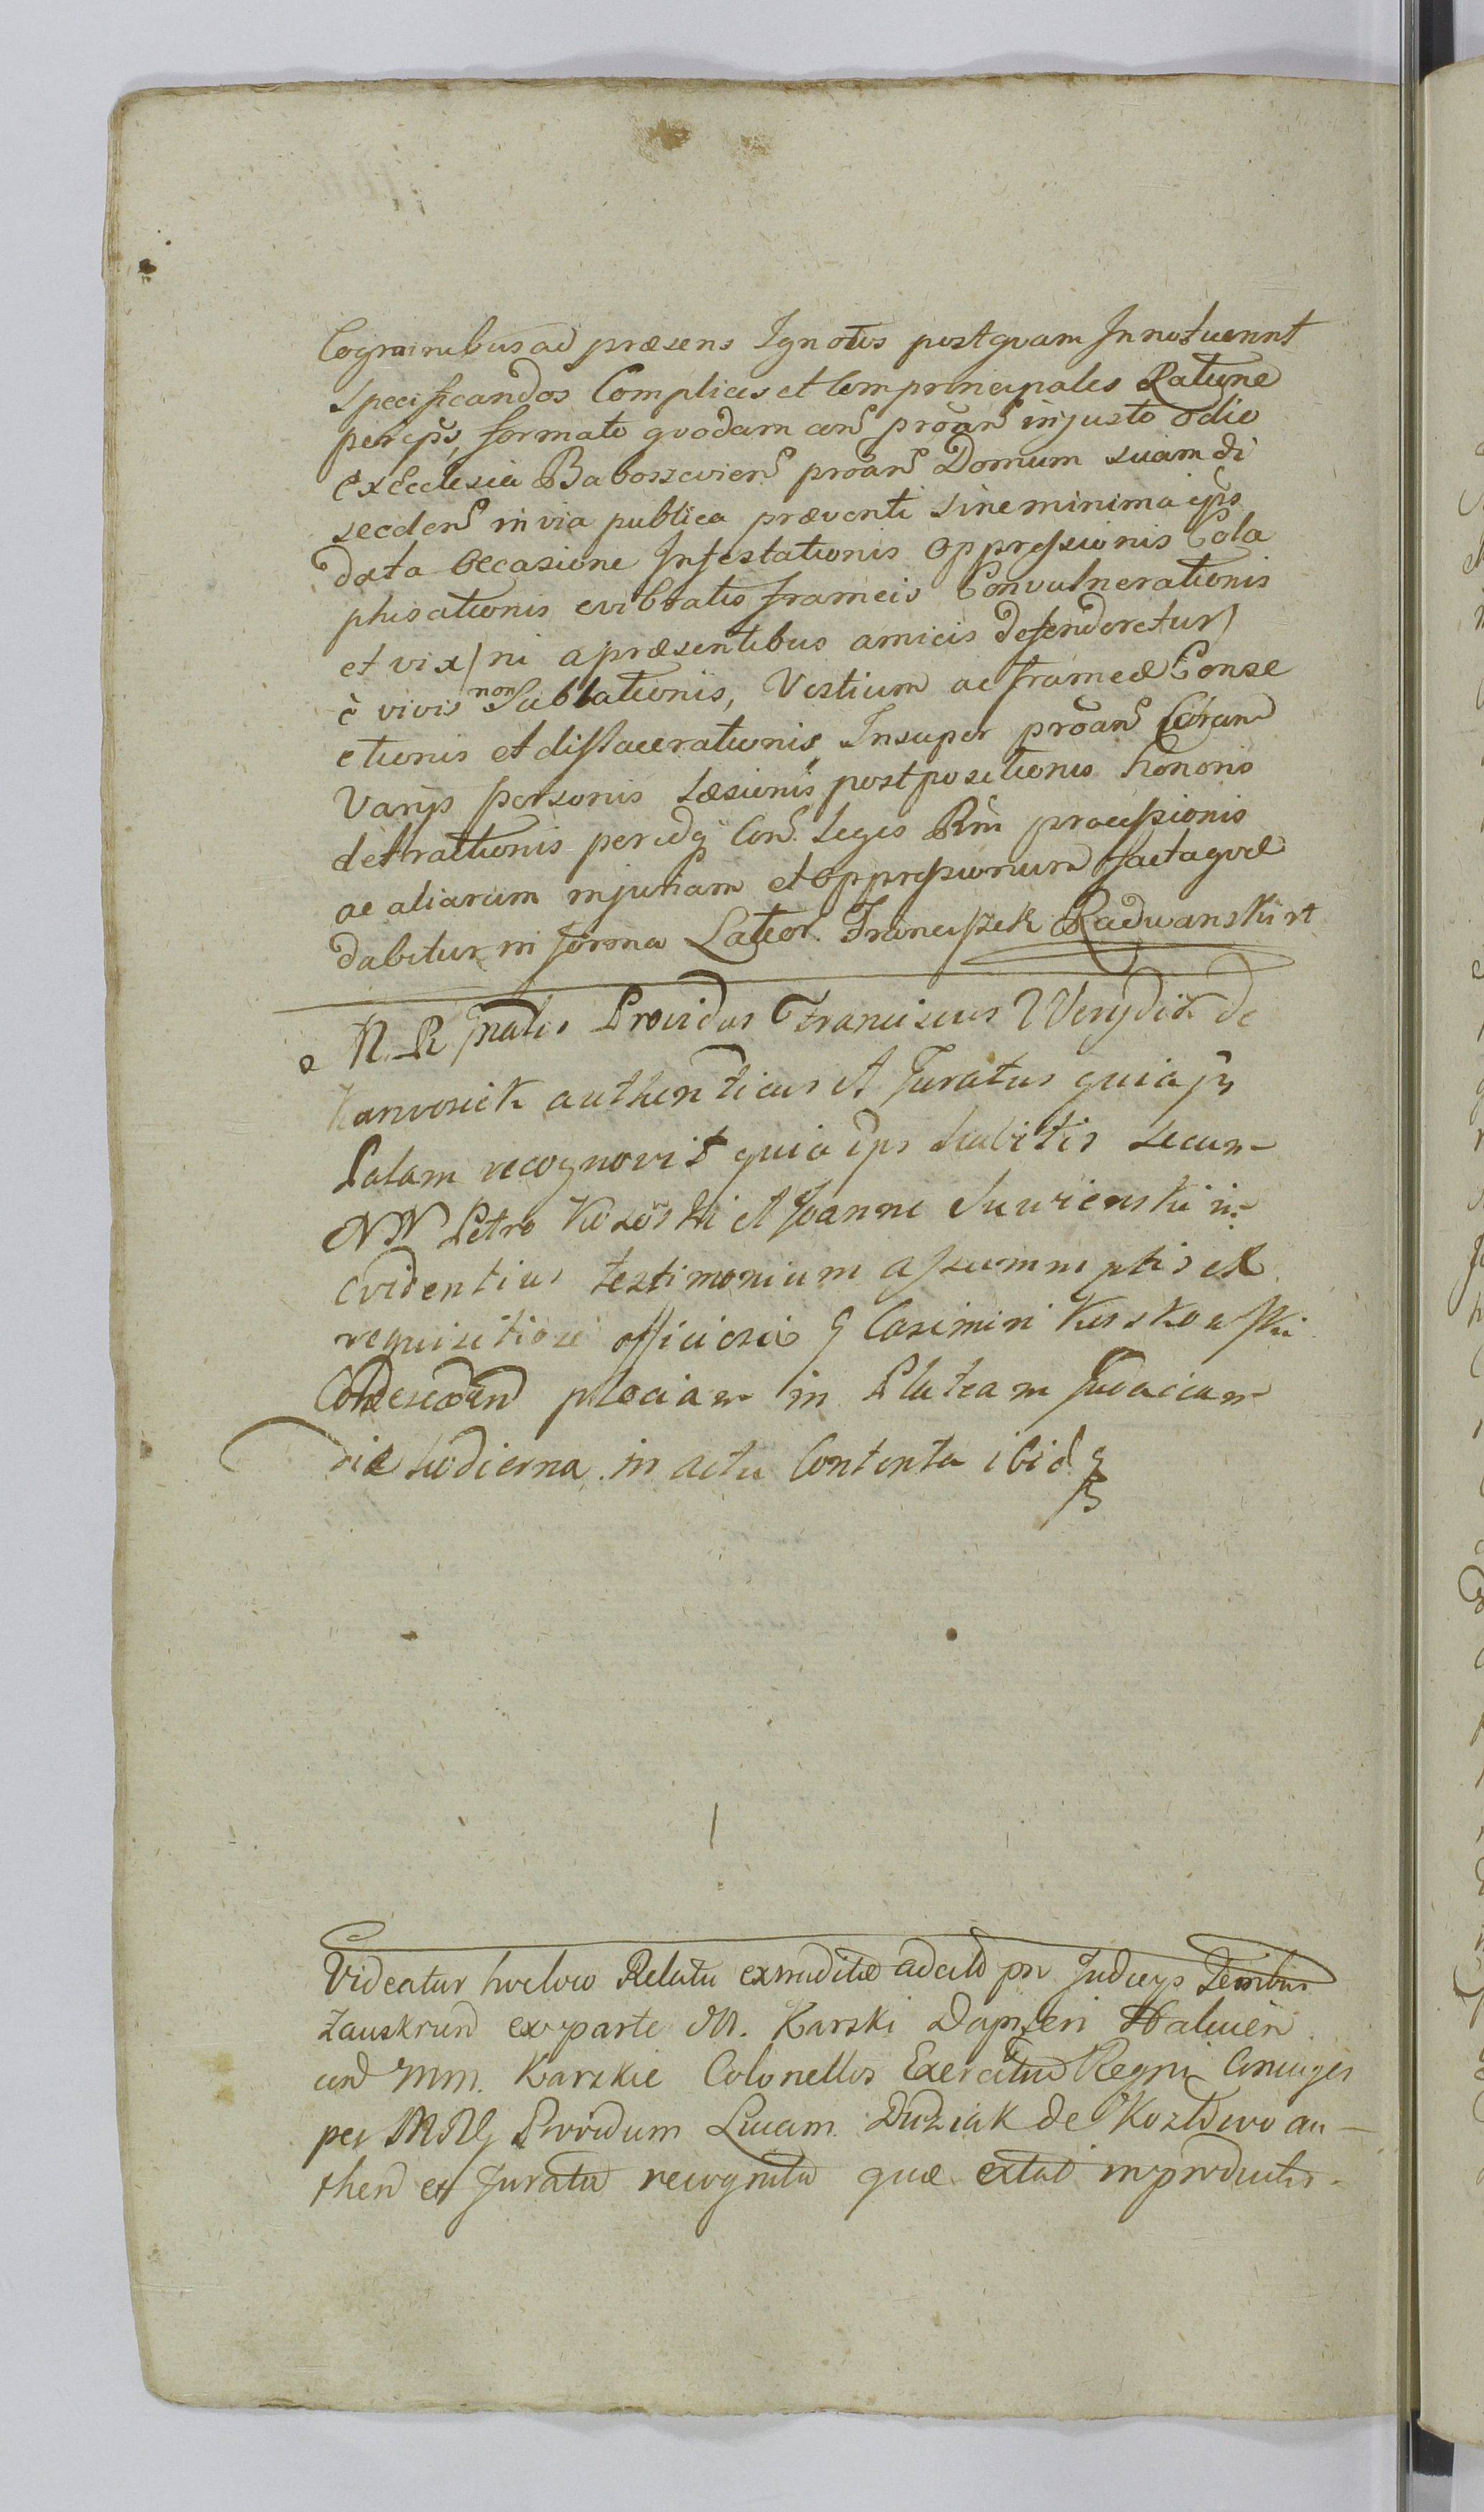 Cognominibus ad præsens Ignotos postquam Innotuerint
specificandos Complices et Comprincipales Ratione
per ipsos, formato quodam con proan injusto odio
ex Ecclesia Baboszevien proan Domum suam di
sceden in via publica præventi sine minima ipso
data occasione Infestationis oppressionis Cola
phisationis evibratis frameis Convulnerationis
et vix / ni a præsentibus amicis defenderetur /
è vivis non Sublationis, Vestium ac frameæ Conse
ctionis et dislacerationis, Insuper proan Coran
Varijs personis Læsionis postpositionis honoris
detractionis per idq Con Leges Rni processionis
ac aliarum injuriam et oppressionum factaque
dabitur in forma Lator Franciszek Radwanski
N. R pnalis Providus Franciscus Werydik de
authenticus et Juratus quia is
Palam recognovit quia ips habitis secum
NN Petro et Joanne in
evidentius testimonium assummptis ad
requisitione officiosi G Casimiri
Condescen plocian in Plateam Judaicam
die hodierna in actu Contenta ibid
Videatur hocloco Relatio ex officio Judicijs Terribus
Zauskrun ex parte M. Karski Dapiferi
con MM. Karskie Colonellos Exercitus Regni Coniuges
per MRG Providum Lucam Duziak de Kozłowo au-
then et Juratu recognita quæ extat in productis.